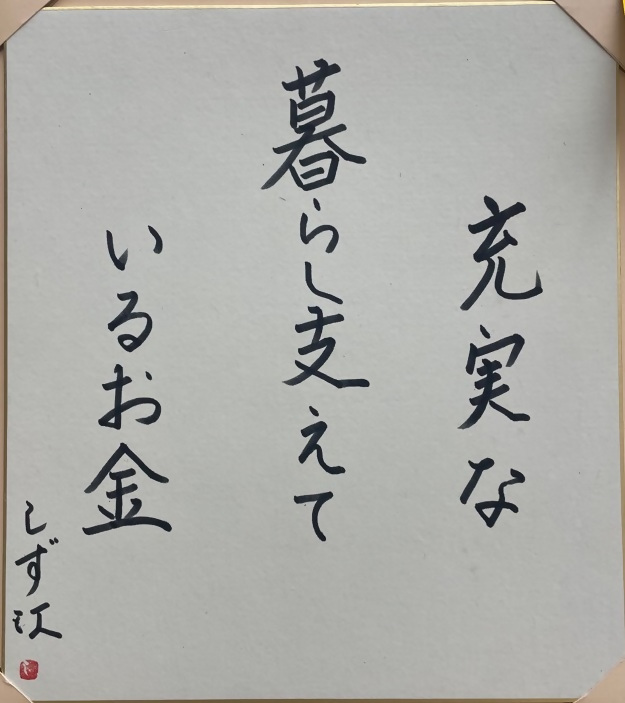 充実な
暮らし支えて
いるお金
しず江